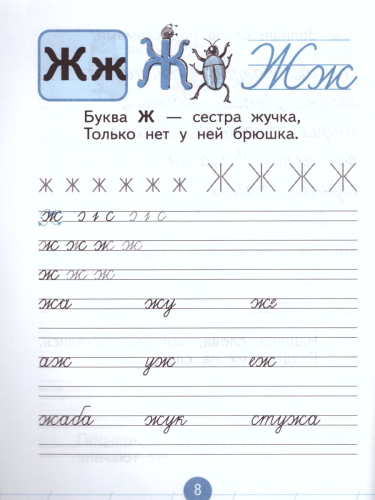 Жж Ж Жж
Буква Ж — сестра жучка,
Только нет у ней брюшка.
ж ж ж ж ж ж Ж Ж Ж Ж
ж э ı с э ı с
ж ж ж ж
ж ж ж
жа жу же
аж уж еж
жаба жук стужа
8